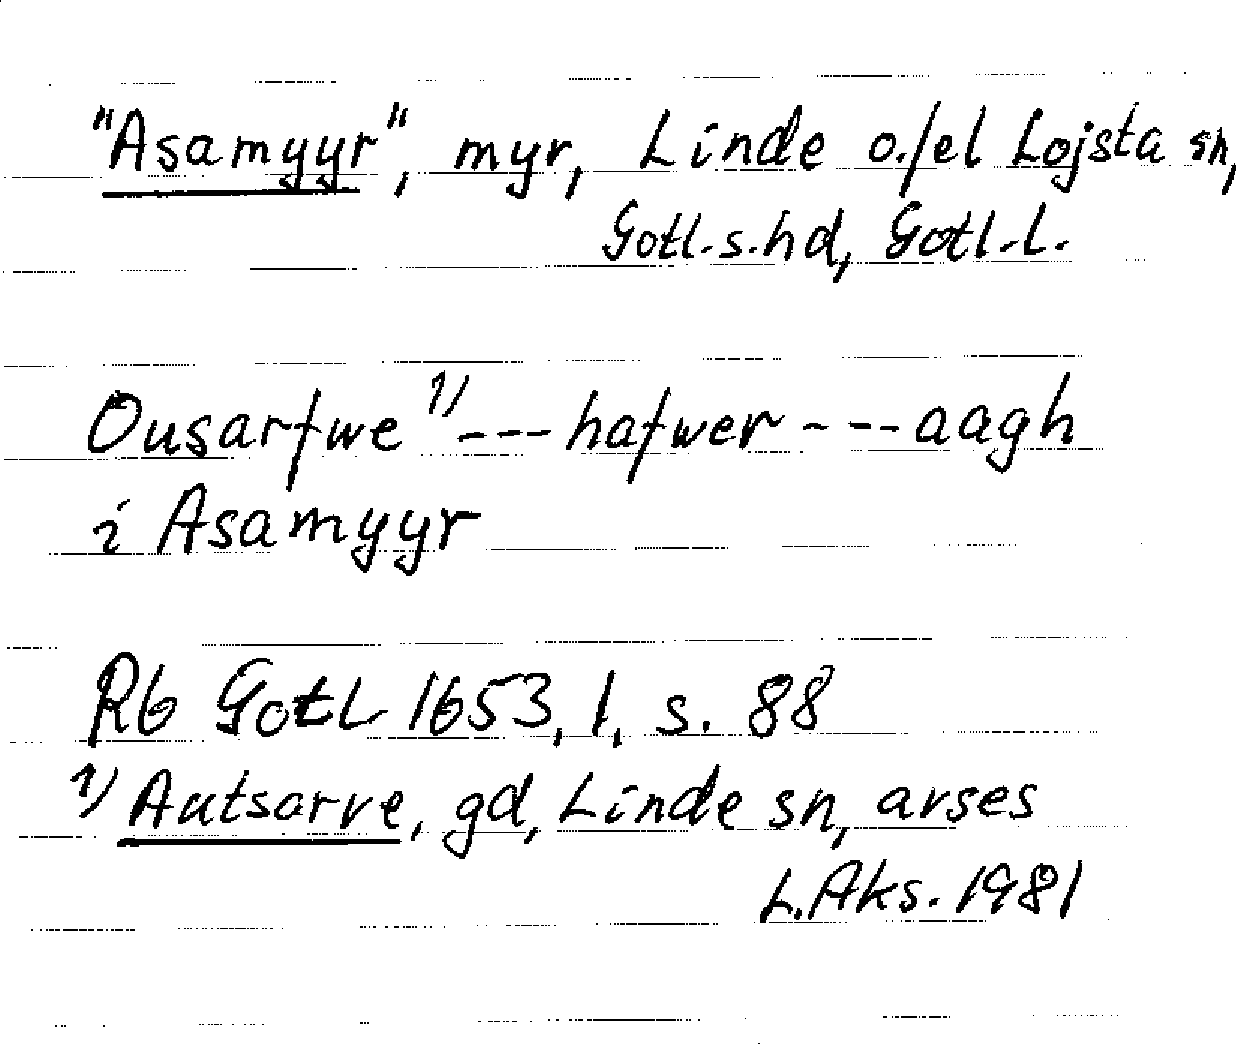 "Asamyyr", myr, Linde o./el Lojsta sn,
Gotl.s.hd, Gotl.l.
Ousarfwe 1) --- hafwer --- aagh
i Asamyyr
Rb Gotl 1653, 1, s. 88
1) Autsarve, gd, Linde sn, avses
L.Aks. 1981